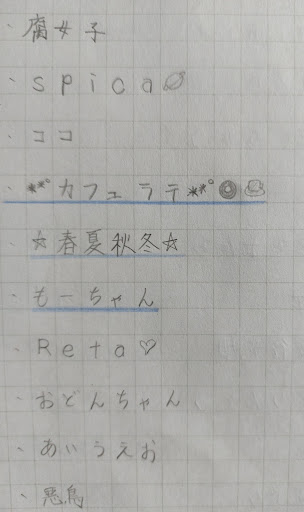 ・腐女子
・spica🪐
・ココ
・**°カフェラテ**°🍩☕
・☆春夏秋冬☆
・もーちゃん
・Reta♡
・おどんちゃん
・あいうえお
・悪鳥